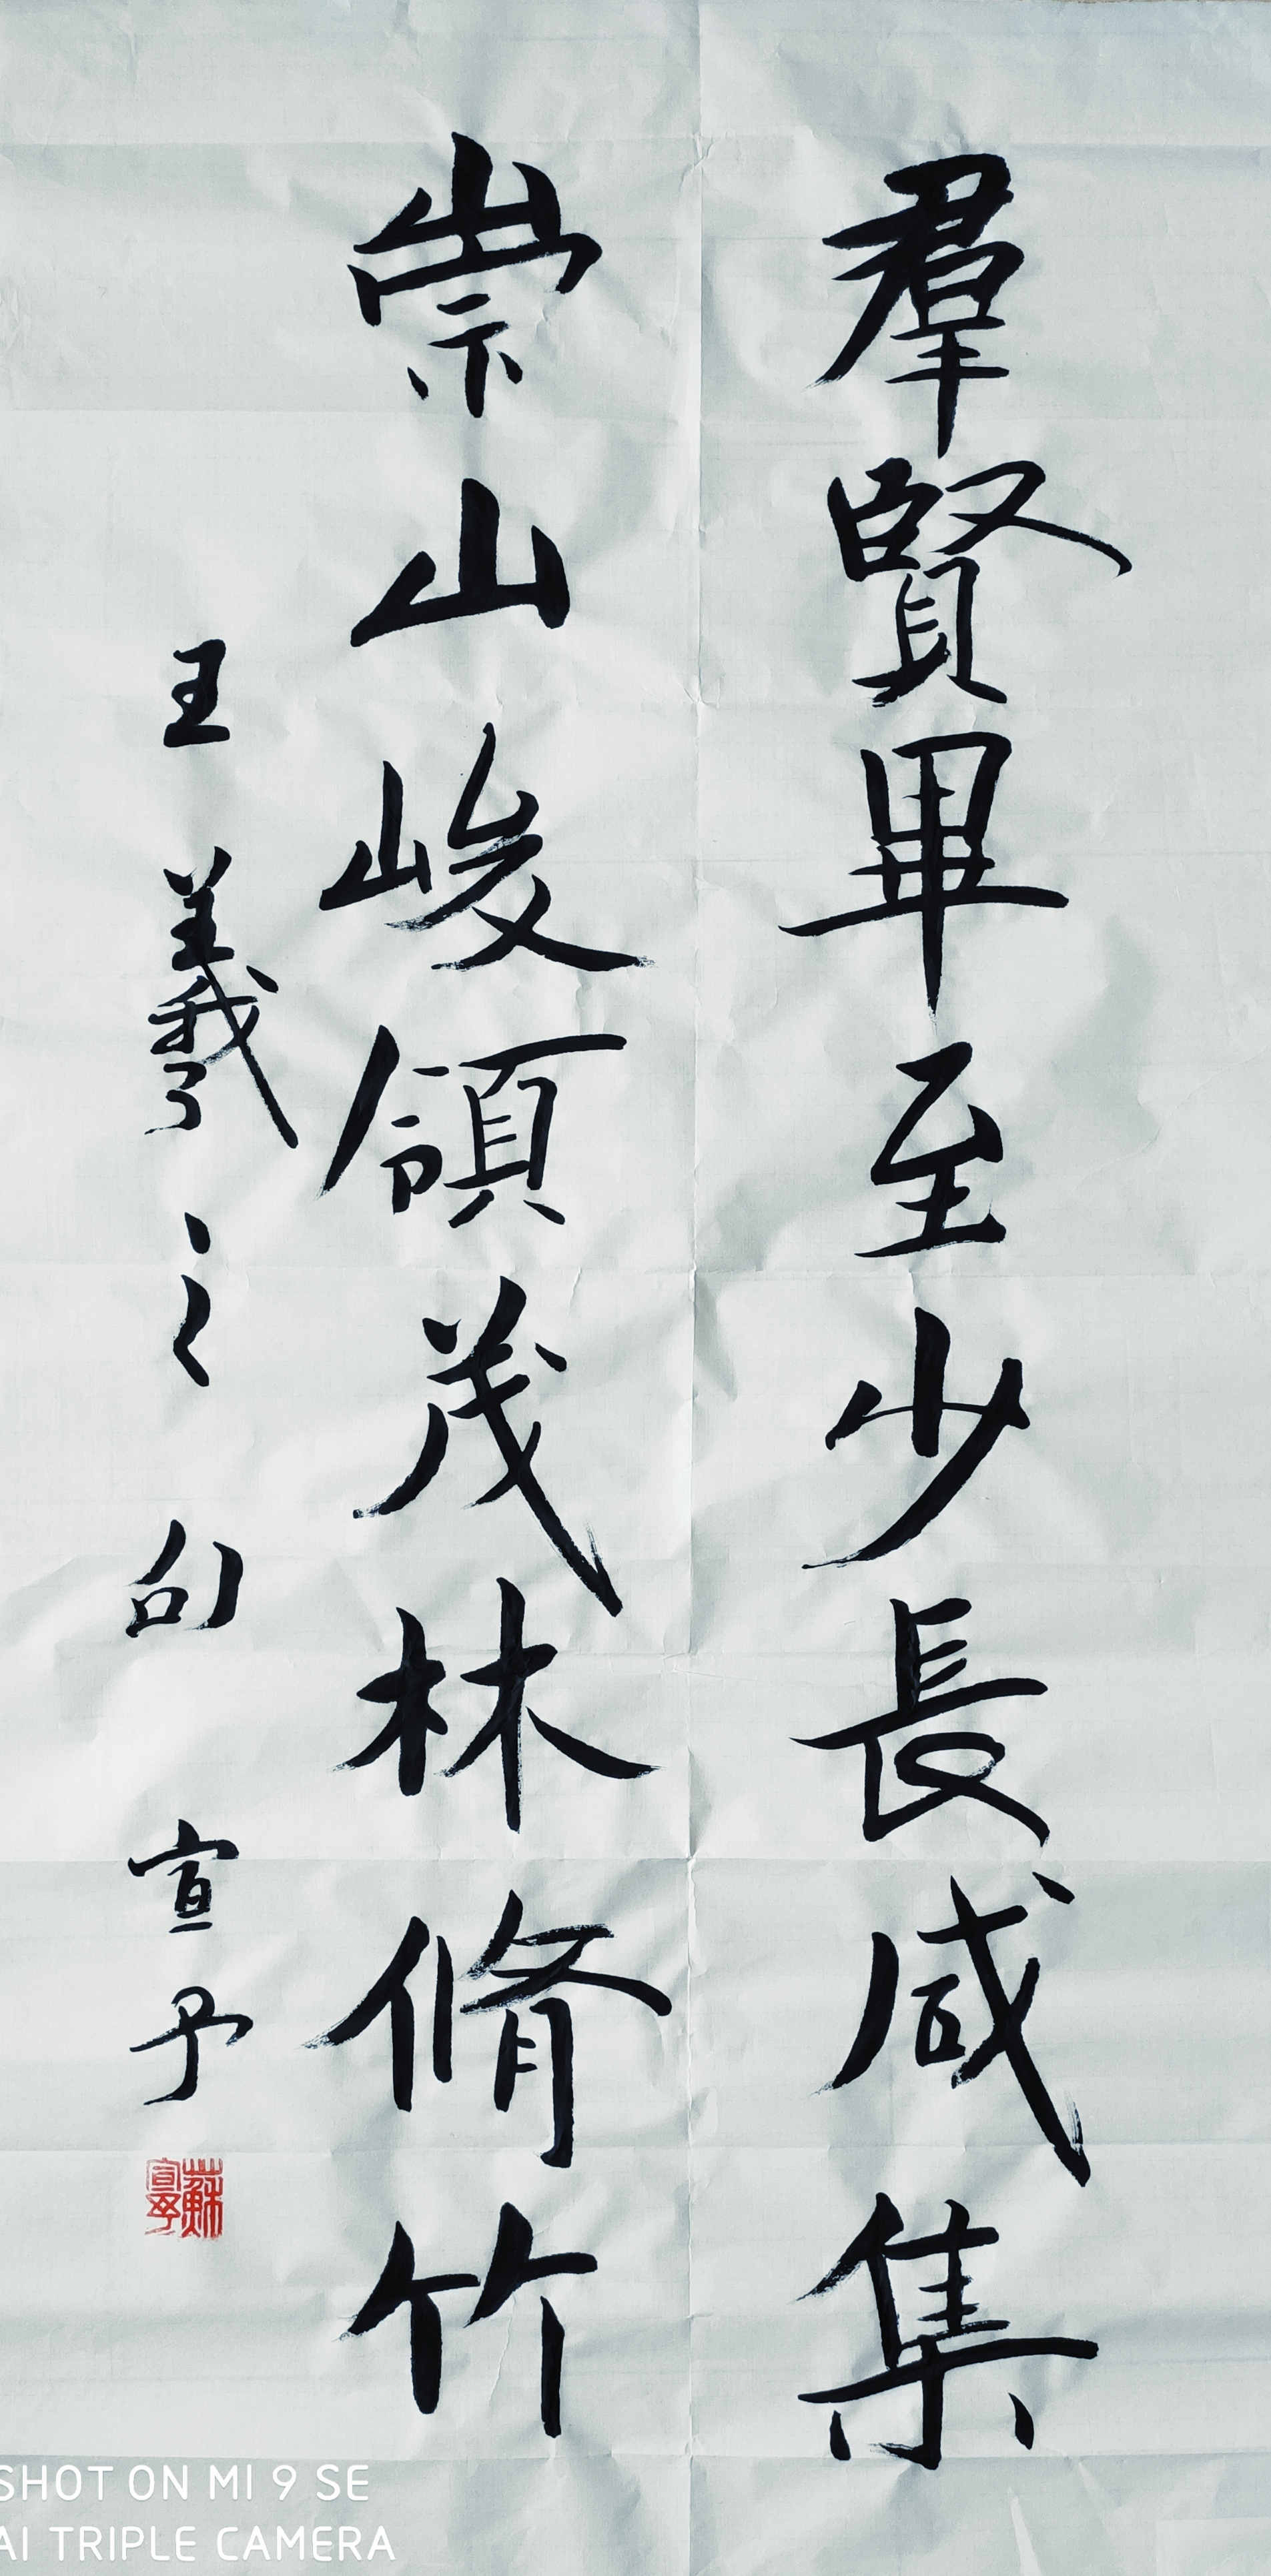 羣賢畢至少長咸集
崇山峻領茂林脩竹
王羲之句 宣予
蘇宣予
SHOT ON MI 9 SE
AI TRIPLE CAMERA